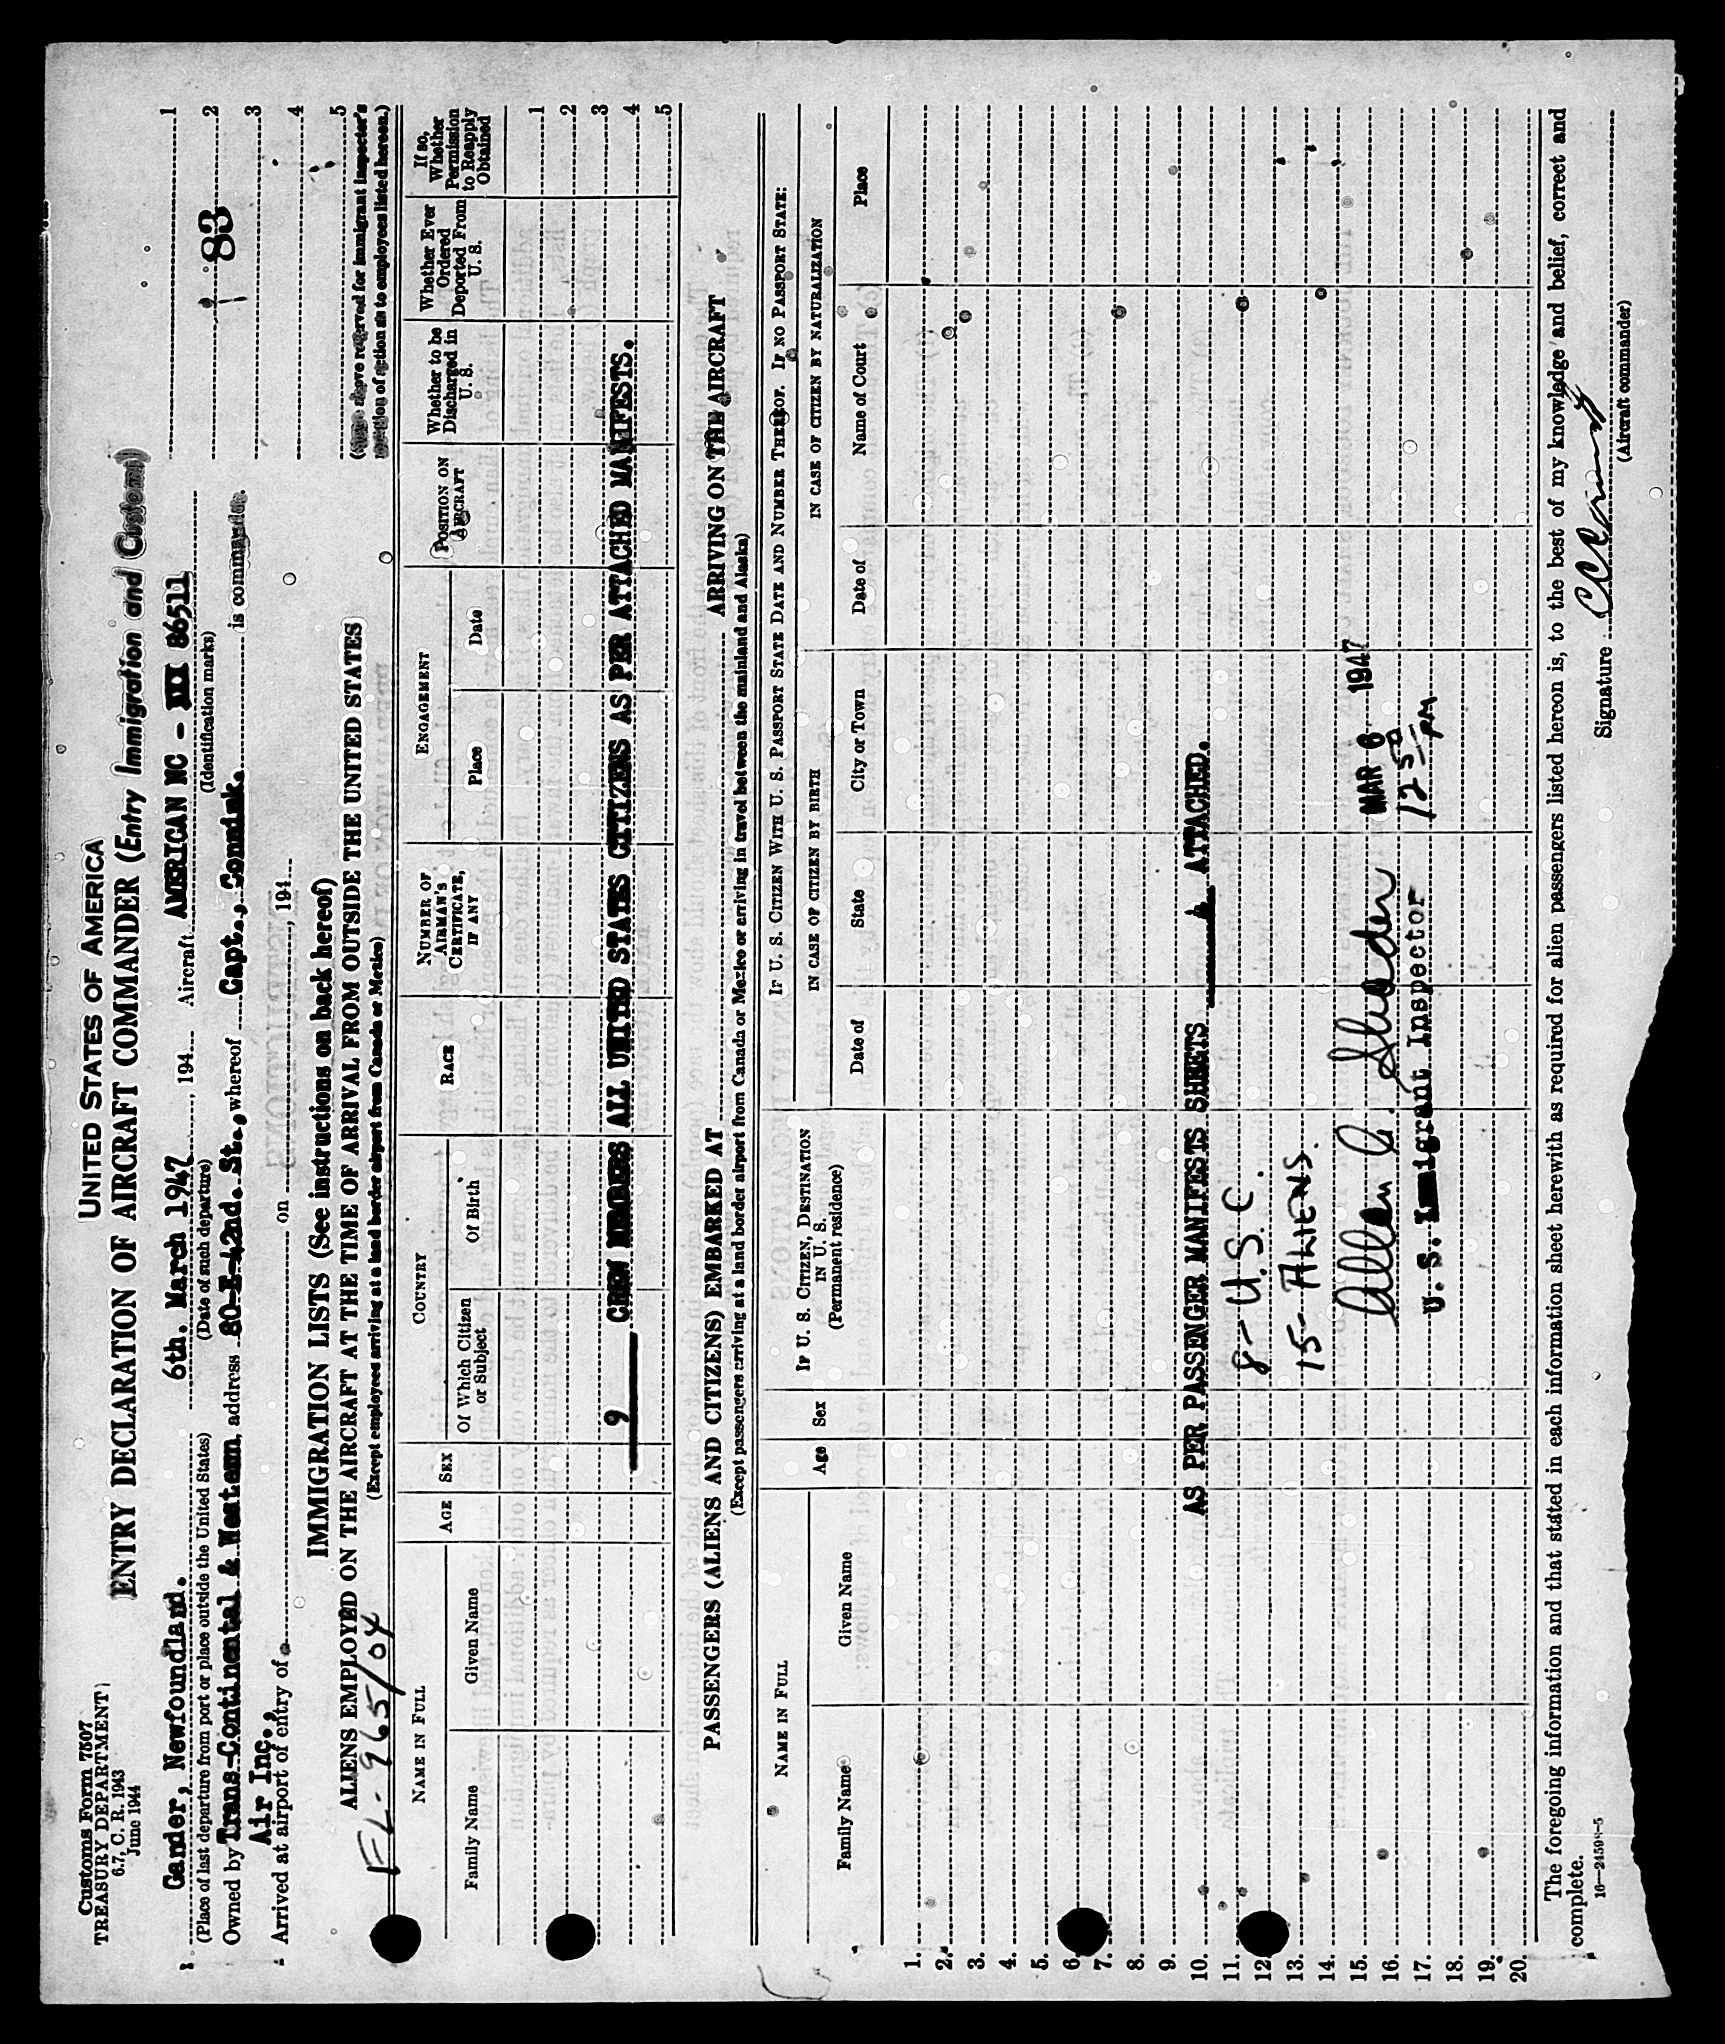 Customs Form 7507
TREASURY DEPARTMENT
6.7, C. R. 1943
June 1944
UNITED STATES OF AMERICA
ENTRY DECLARATION OF AIRCRAFT COMMANDER (Entry Immigration and Customs)
Gander, Newfoundland. 6th. March 1947, 194 Aircraft AMERICAN NC - 86511
(Place of last departure from port or place outside the United States) (Date of such departure) (Identification marks)
Owned by Trans-Continental & Western, address 80-E-42nd. St., whereof Capt., is commander.
Air Inc.,
Arrived at airport of entry of on , 194
1
2
183
3
4
5
(Space above reserved for immigrant inspector's
notation of action as to employees listed hereon.)
IMMIGRATION LISTS (See instructions on back hereof)
ALIENS EMPLOYED ON THE AIRCRAFT AT THE TIME OF ARRIVAL FROM OUTSIDE THE UNITED STATES
(Except employees arriving at a land border airport from Canada or Mexico)
FL-965/04
NAME IN FULL
Family Name
Given Name
AGE
SEX
COUNTRY
Of Which Citizen or Subject
Of Birth
RACE
NUMBER OF AIRMAN'S CERTIFICATE, IF ANY
ENGAGEMENT
Place
Date
POSITION ON AIRCRAFT
Whether to be Discharged in U. S.
Whether Ever Ordered Deported From U. S.
If so, Whether Permission to Reapply Obtained
1
2
3
9 CREW MEMBERS ALL UNITED STATES CITIZENS AS PER ATTACHED MANIFESTS.
4
5
PASSENGERS (ALIENS AND CITIZENS) EMBARKED AT ARRIVING ON THE AIRCRAFT
(Except passengers arriving at a land border airport from Canada or Mexico or arriving in travel between the mainland and Alaska)
NAME IN FULL
Family Name
Given Name
Age
Sex
IF U. S. CITIZEN, DESTINATION IN U. S.
(Permanent residence)
IF U. S. CITIZEN WITH U. S. PASSPORT STATE DATE AND NUMBER THEREOF. IF NO PASSPORT STATE:
IN CASE OF CITIZEN BY BIRTH
Date of
State
City or Town
IN CASE OF CITIZEN BY NATURALIZATION
Date of
Name of Court
Place
1.
2.
3.
4.
5.
6.
7.
8.
9.
10. AS PER PASSENGER MANIFESTS SHEETS ATTACHED.
11.
8 - U.S.C.
12.
13. 15 - ALIENS.
14.
15. MAR 6 1947
16. 12 50 PM
17. U. S. Immigrant Inspector
18.
19.
20.
The foregoing information and that stated in each information sheet herewith as required for alien passengers listed hereon is, to the best of my knowledge and belief, correct and
complete.
16—24598-5
Signature
(Aircraft commander)